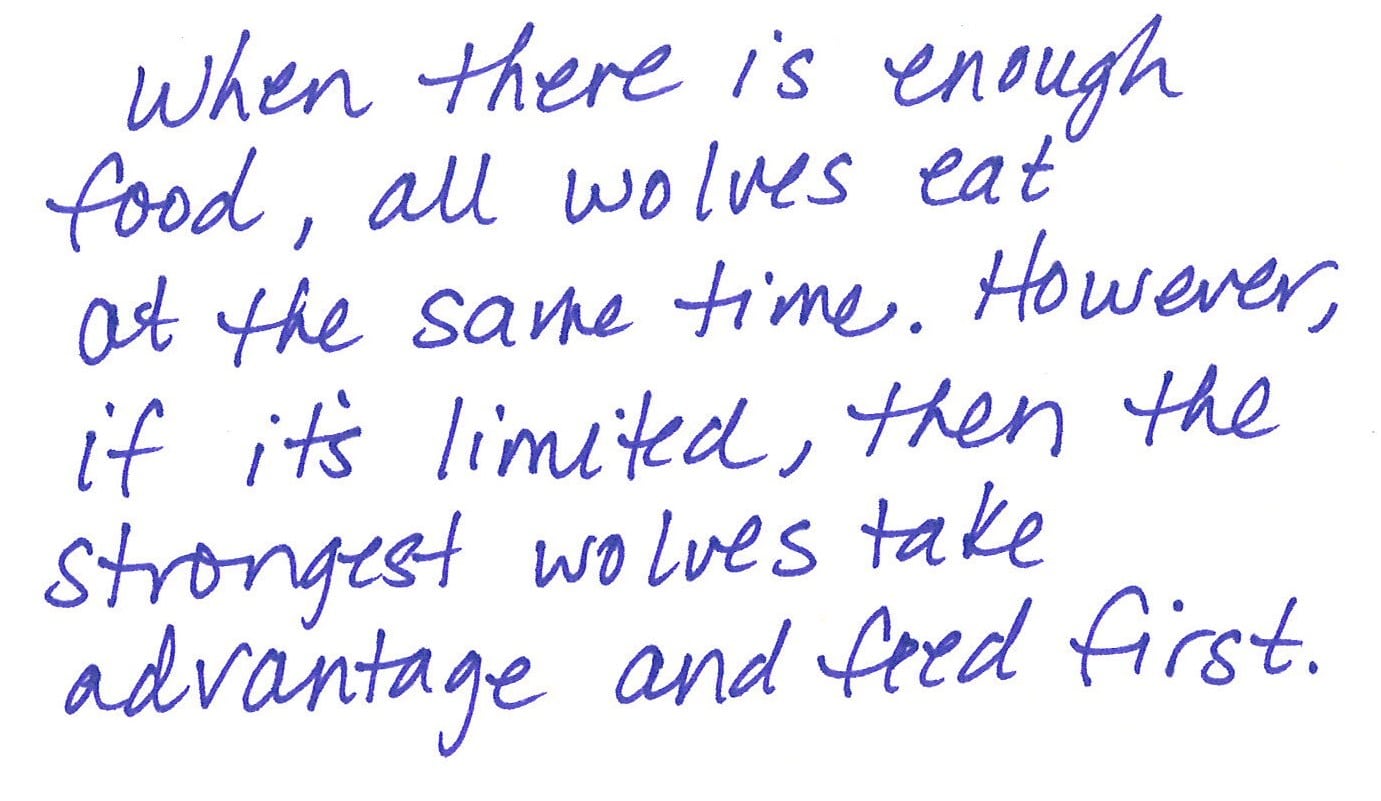 When there is enough
food, all wolves eat
at the same time. However,
if it's limited, then the
strongest wolves take
advantage and feed first.